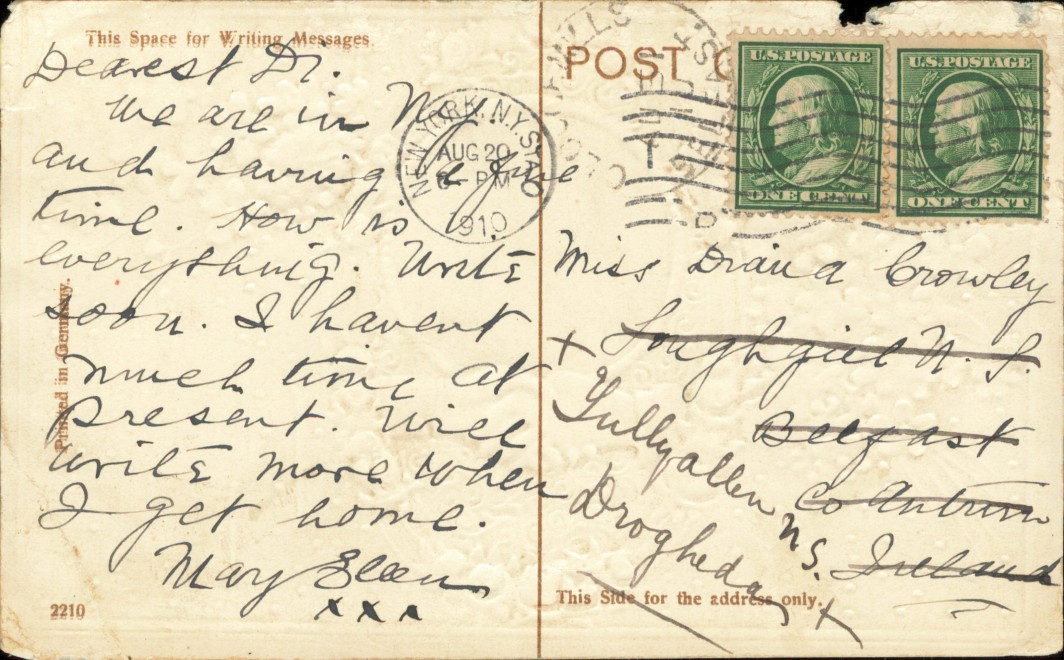 This Space for Writing Messages.
Dearest Di.
We are in N.Y.
and having a fine
time. How is
everything. Write
soon. I havent
much time at
present. Will
write more when
I get home.
Mary Ellen
x x x
Printed in Germany.
2210
NEW YORK, N.Y. STA
AUG 20
PM
1910
POST C
U.S. POSTAGE
ONE CENT
U.S. POSTAGE
ONE CENT
Miss Diana Crowley
Loughgiel N.S.
Belfast
Co Antrim
Ireland
Tullyallen N.S.
Drogheda
This Side for the address only.